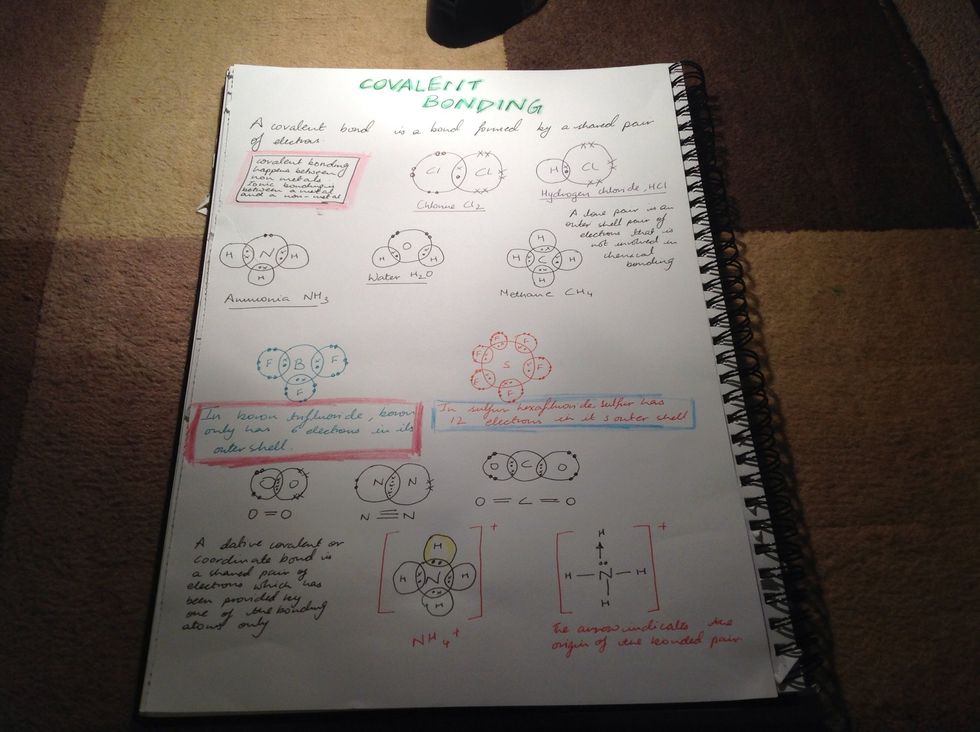 COVALENT
BONDING
A covalent bond is a bond formed by a shared pair
of electrons.
covalent bonding
happens between
non metals
Ionic bonding
between a metal
and a non-metal
Cl Cl
Chlorine Cl2
H Cl
Hydrogen chloride, HCl
A lone pair is an
outer shell pair of
electrons that is
not involved in
chemical
bonding
H N H
H
Ammonia NH3
O
H H
Water H2O
H
H C H
H
Methane CH4
F B F
F
F F
F S F
F F
In boron trifluoride, boron
only has 6 electrons in its
outer shell.
In sulfur hexafluoride sulfur has
12 electrons in it s outer shell
O O
O = O
N N
N ≡ N
O C O
O = C = O
A dative covalent or
coordinate bond is
a shared pair of
electrons which has
been provided by
one of the bonding
atoms only
+
H
H N H
H
NH4+
+
H
H N H
H
The arrow indicates the
origin of the bonded pair